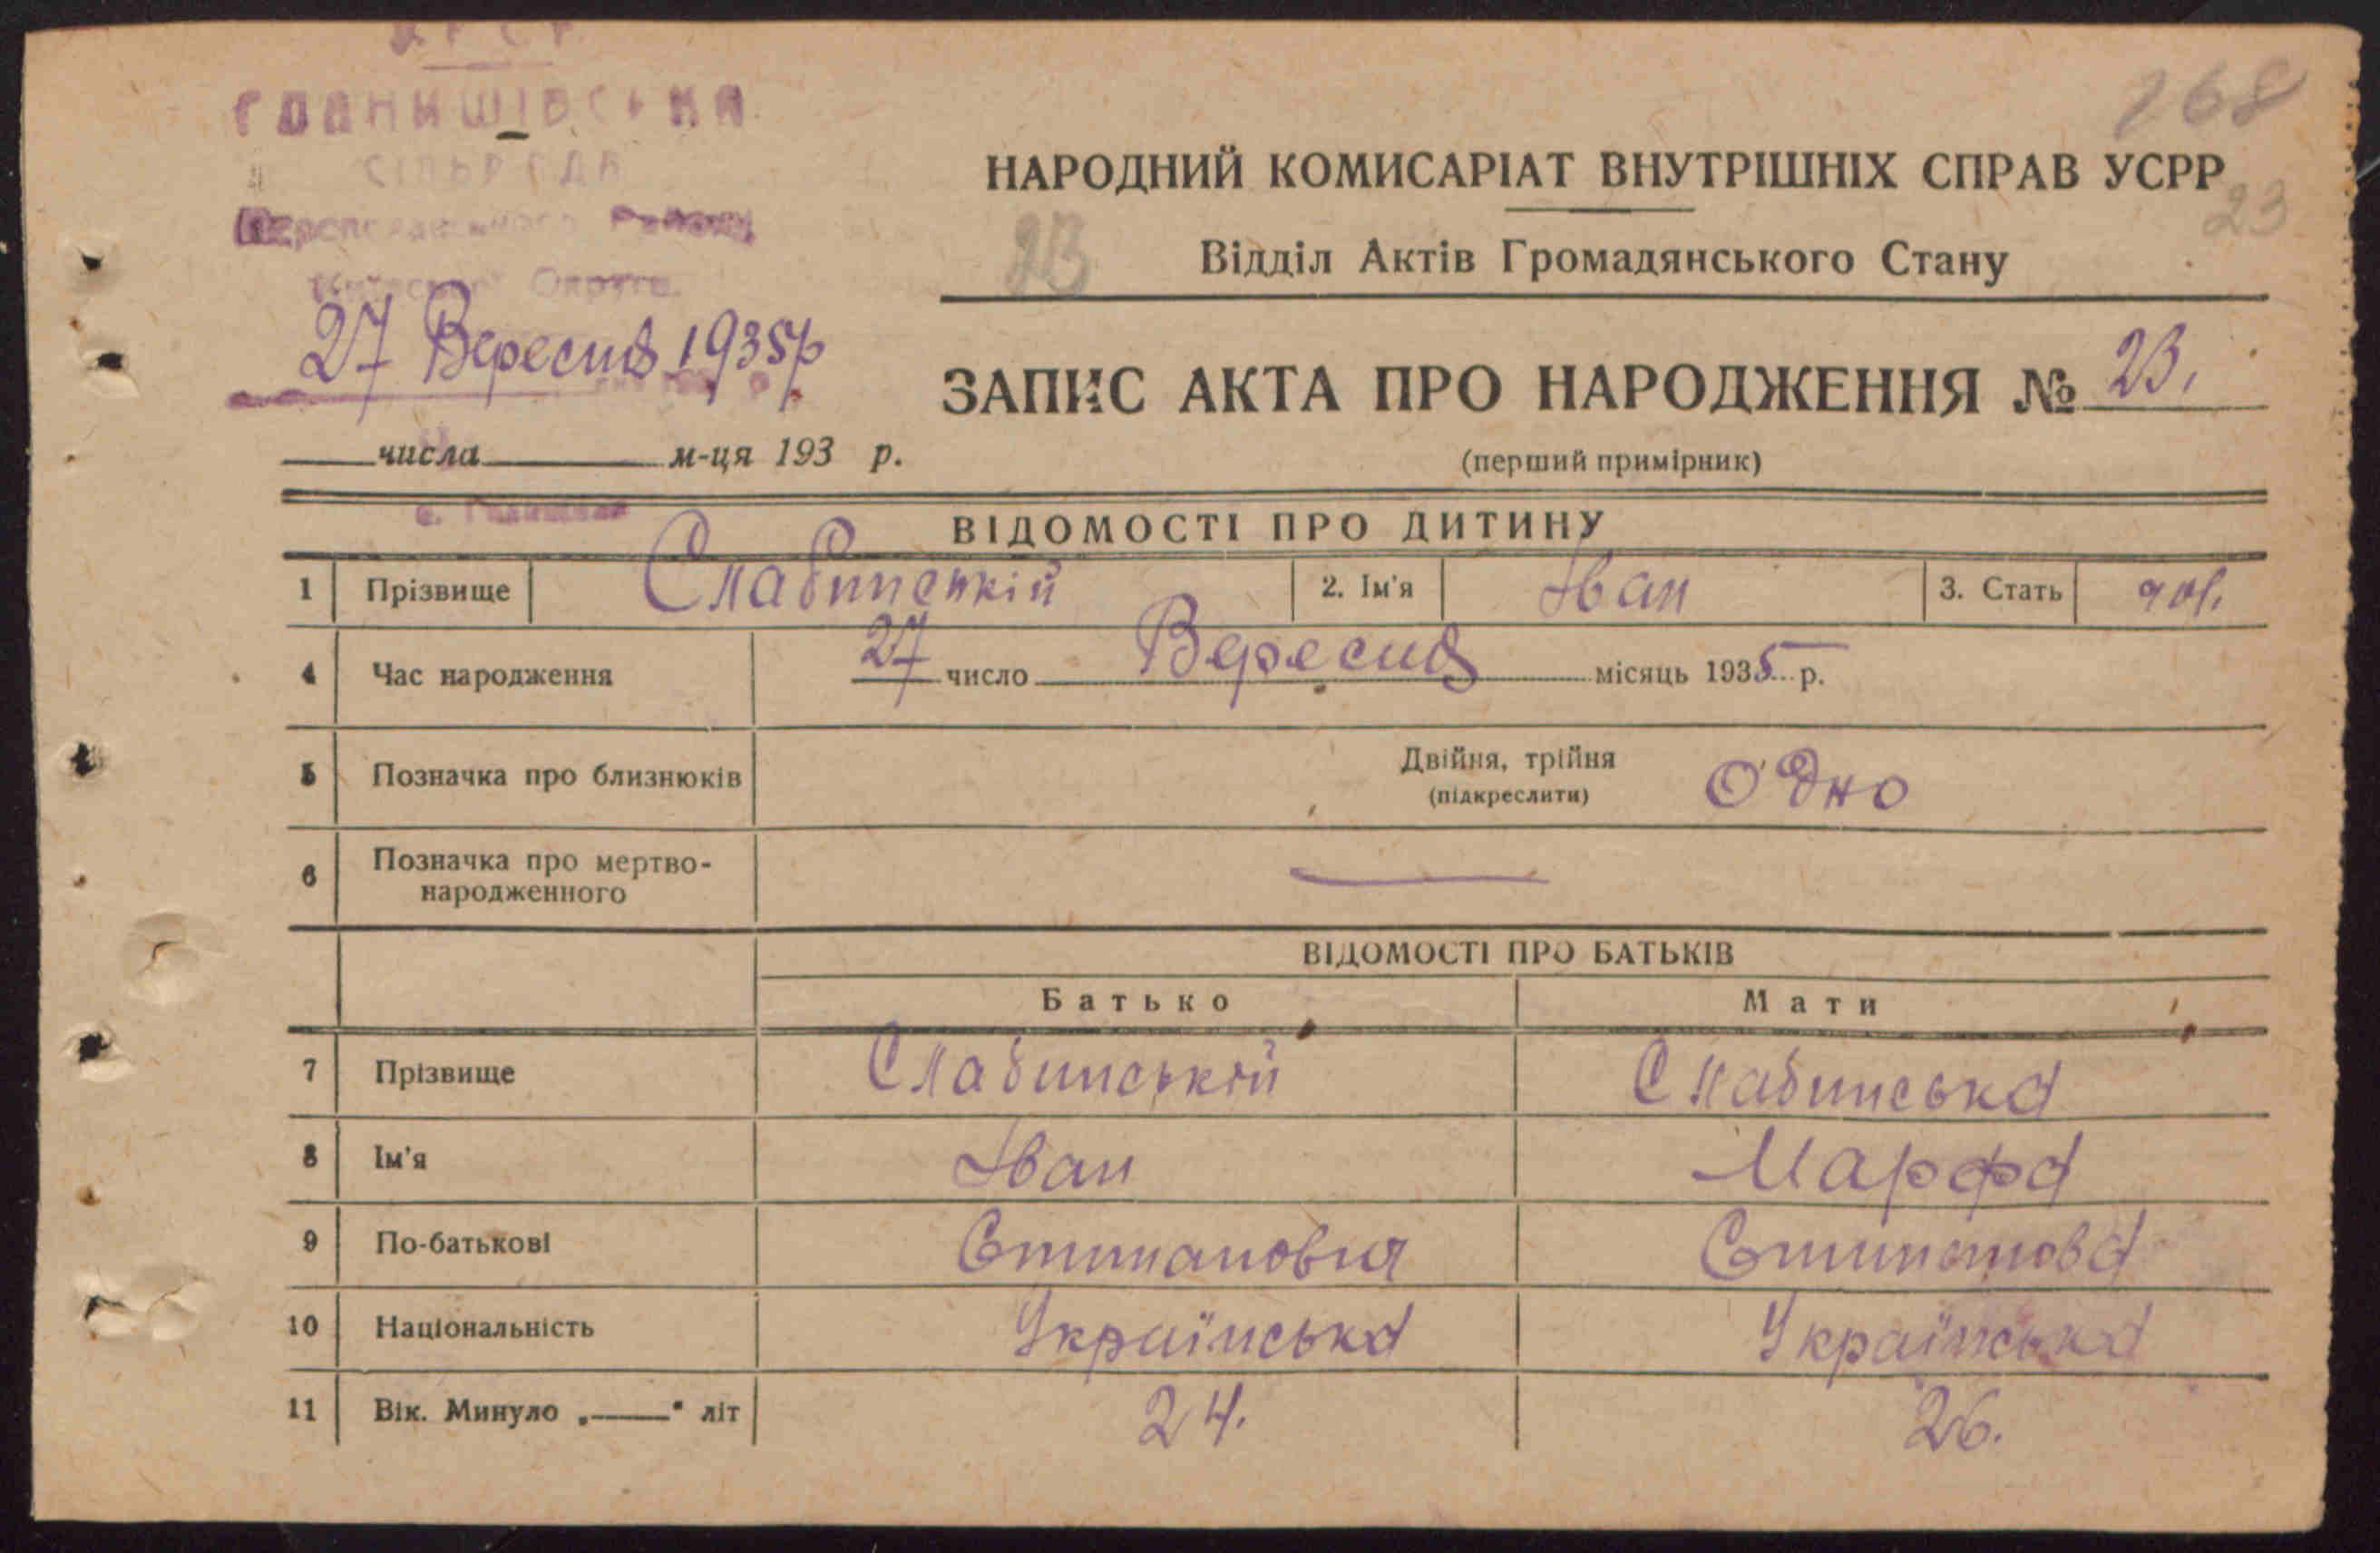 268
СІЛЬРАДА
НАРОДНИЙ КОМИСАРІАТ ВНУТРІШНІХ СПРАВ УСРР
23
23
Відділ Актів Громадянського Стану
Округа
27 Вересня 1935 р
ЗАПИС АКТА ПРО НАРОДЖЕННЯ № 23.
числа м-ця 193 р.
(перший примірник)
ВІДОМОСТІ ПРО ДИТИНУ
1 Прізвище Слабинський 2. Ім'я Іван 3. Стать чол.
4 Час народження 27 число Вересня місяць 1935 р.
5 Позначка про близнюків Двійня, трійня (підкреслити) Одно
6 Позначка про мертво-
народженного
ВІДОМОСТІ ПРО БАТЬКІВ
Батько Мати
7 Прізвище Слабинській Слабинська
8 Ім'я Іван Марфа
9 По-батькові
10 Національність Українська Українська
11 Вік. Минуло „ “ літ 24. 26.